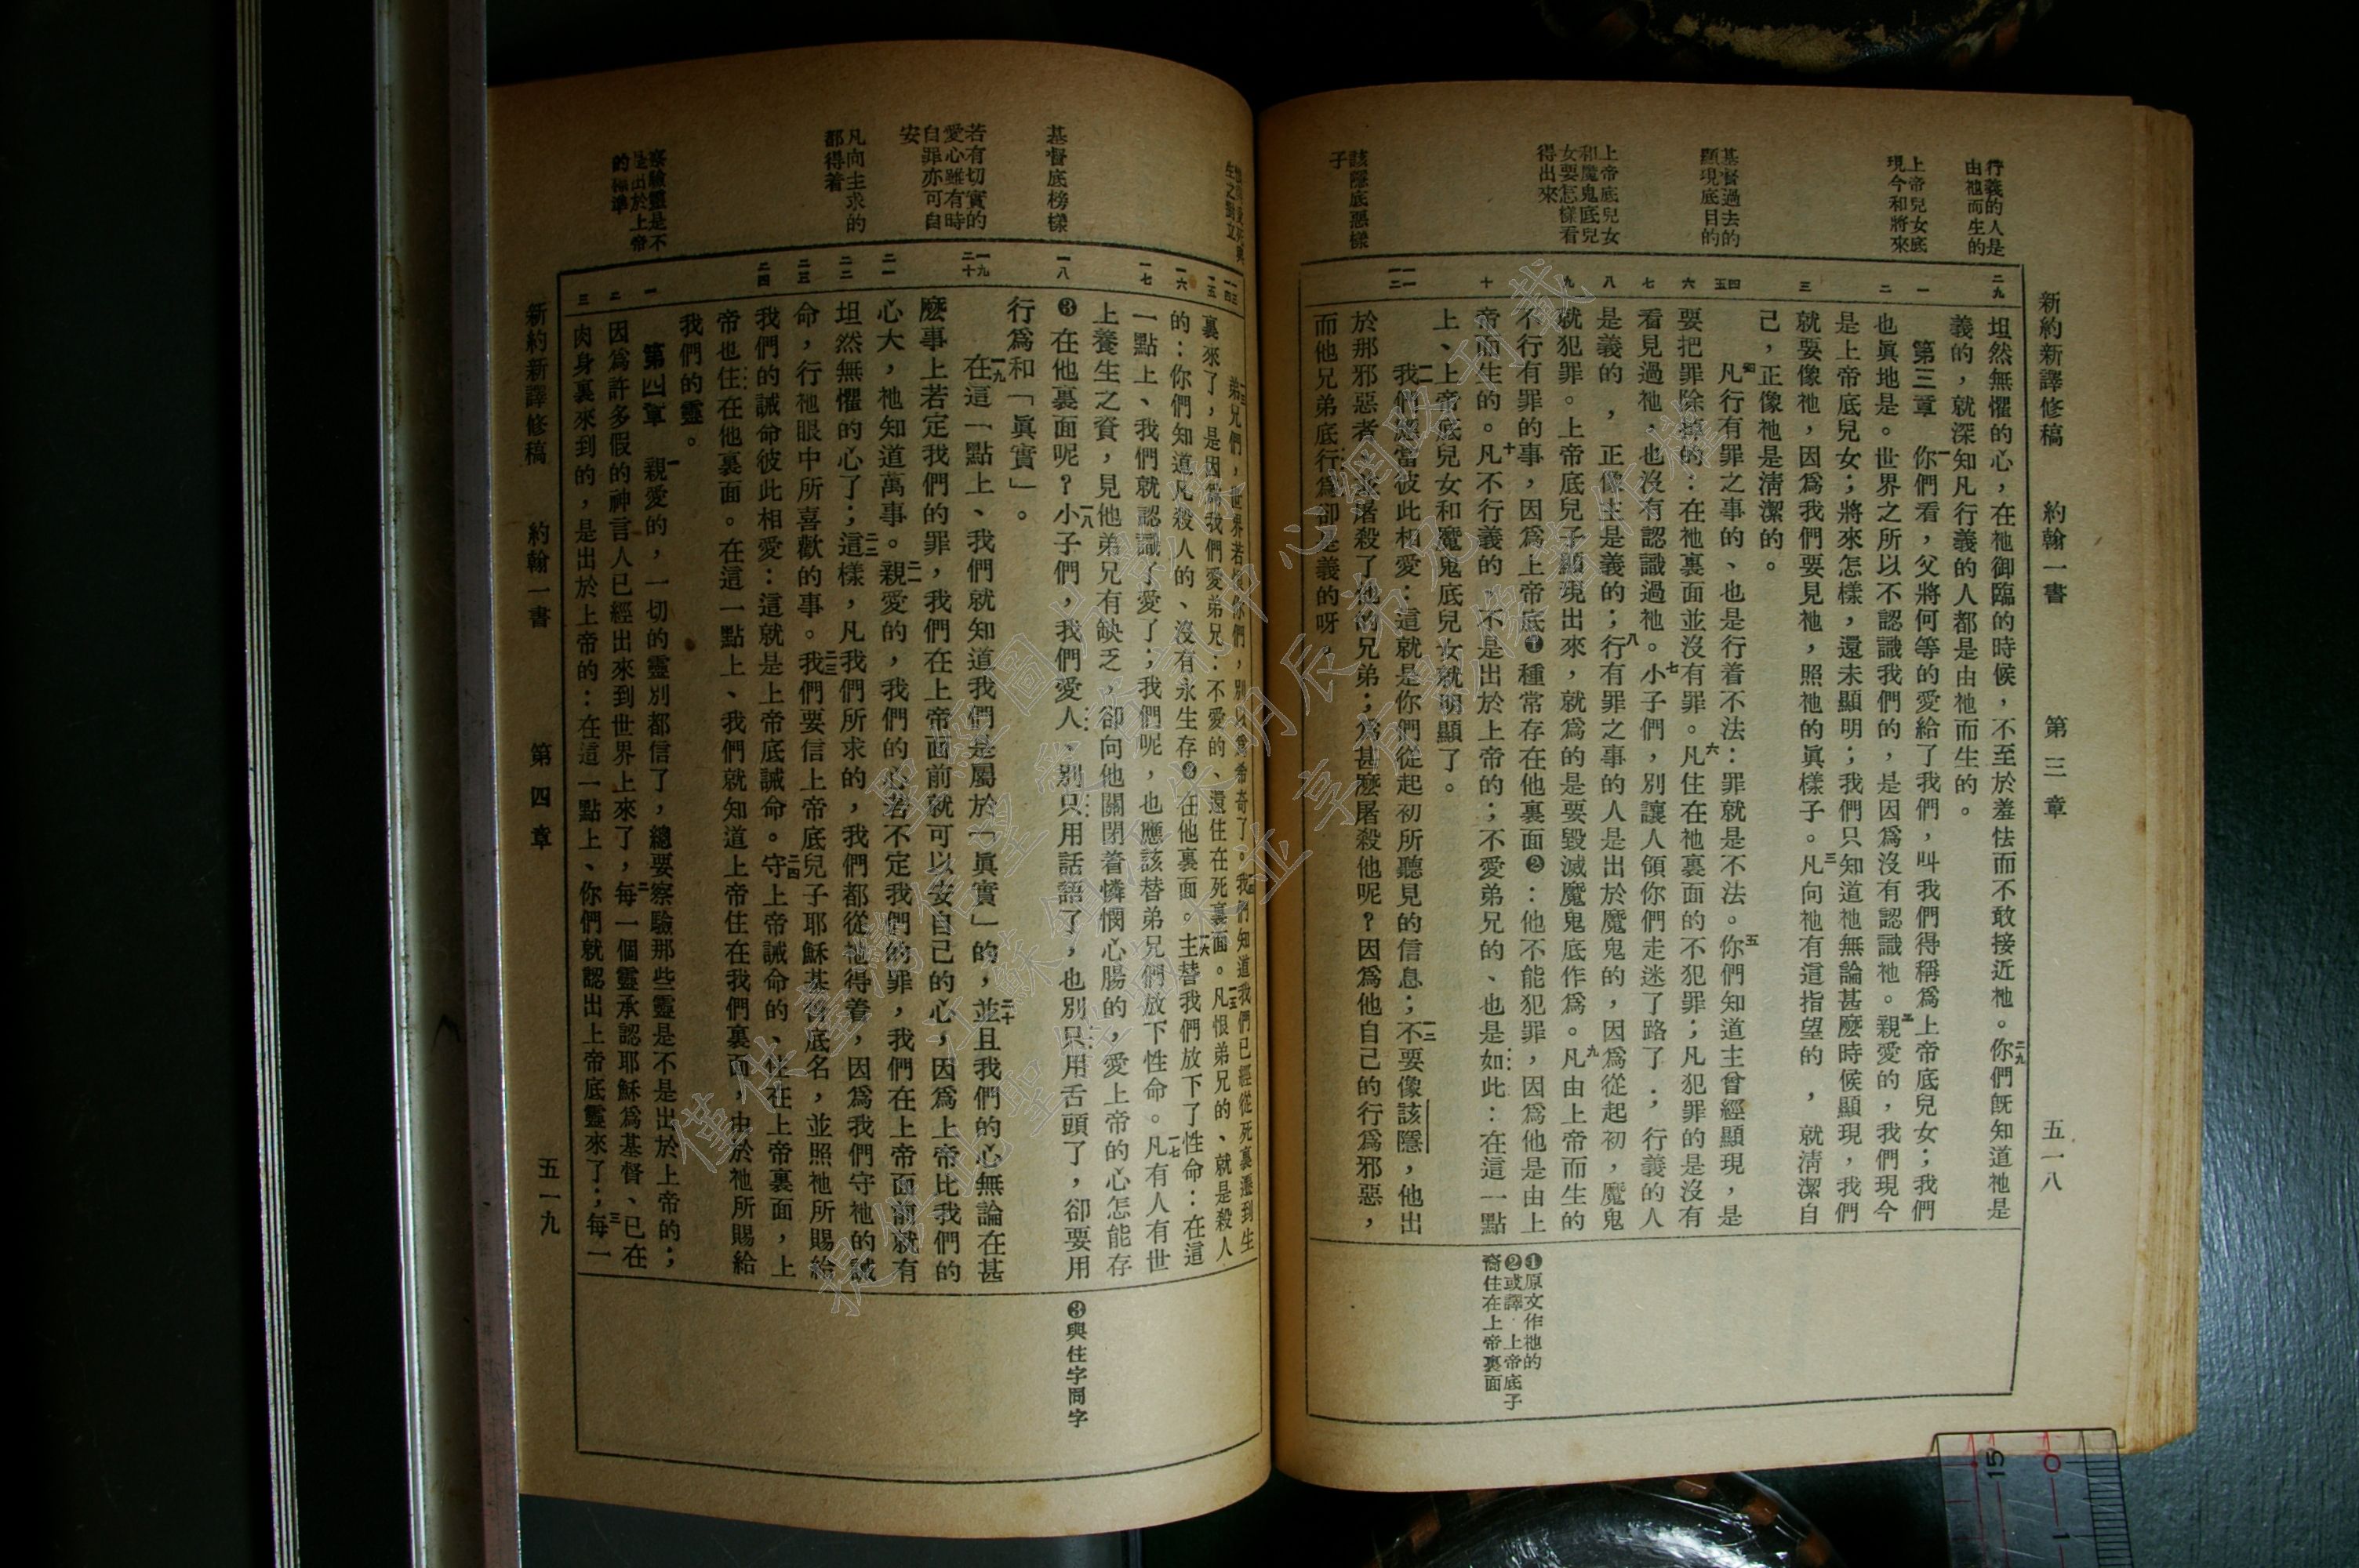 新約新譯修稿 約翰一書 第三章 五一八
行義的人是
由祂而生的
上帝兒女底
現今和將來
基督過去的
顯現底目的
上帝底兒女
和魔鬼底兒
女要怎樣看
得出來
該隱底惡樣
子
二九
一
二
三
四
五
六
七
八
九
十
一一
一二
坦然無懼的心，在祂御臨的時候，不至於羞怯而不敢接近祂。二九你們旣知道祂是
義的，就深知凡行義的人都是由祂而生的。
第三章 一你們看，父將何等的愛給了我們，叫我們得稱爲上帝底兒女；我們
也眞地是。世界之所以不認識我們的，是因爲沒有認識祂。二親愛的，我們現今
是上帝底兒女；將來怎樣，還未顯明；我們只知道祂無論甚麼時候顯現，我們
就要像祂，因爲我們要見祂，照祂的眞樣子。三凡向祂有這指望的，就淸潔自
己，正像祂是淸潔的。
四凡行有罪之事的、也是行着不法：罪就是不法。五你們知道主曾經顯現，是
要把罪除掉的：在祂裏面並沒有罪。六凡住在祂裏面的不犯罪；凡犯罪的是沒有
看見過祂，也沒有認識過祂。七小子們，別讓人領你們走迷了路了；行義的人
是義的，正像主是義的；八行有罪之事的人是出於魔鬼的，因爲從起初，魔鬼
就犯罪。上帝底兒子顯現出來，就爲的是要毀滅魔鬼底作爲。九凡由上帝而生的
不行有罪的事，因爲上帝底❶種常存在他裏面❷：他不能犯罪，因爲他是由上
帝而生的。十凡不行義的，不是出於上帝的；不愛弟兄的、也是如此：在這一點
上、上帝底兒女和魔鬼底兒女就明顯了。
一一我們應當彼此相愛：這就是你們從起初所聽見的信息；一二不要像該隱，他出
於那邪惡者、去屠殺了他的兄弟；爲甚麼屠殺他呢？因爲他自己的行爲邪惡，
而他兄弟底行爲卻是義的呀。
❶原文作祂的
❷或譯：上帝底子
裔住在上帝裏面
生之對立
基督底榜樣
若有切實的
愛心雖有時
自罪亦可自
安
凡向主求的
都得着
察驗靈是不
是出於上帝
的標準
一三
一四
一五
一六
一七
一八
一九
二十
二一
二二
二三
二四
一
二
三
一三弟兄們，世界若恨你們，別以爲希奇了。一四我們知道我們已經從死裏遷到生
裏來了，是因爲我們愛弟兄：不愛的、還住在死裏面。一五凡恨弟兄的、就是殺人
的：你們知道凡殺人的、沒有永生存❸在他裏面。一六主替我們放下了性命：在這
一點上、我們就認識了愛了；我們呢，也應該替弟兄們放下性命。一七凡有人有世
上養生之資，見他弟兄有缺乏，卻向他關閉着憐憫心腸的，愛上帝的心怎能存
❸在他裏面呢？一八小子們，我們愛人，別只用話語了，也別只用舌頭了，卻要用
行爲和「眞實」。
一九在這一點上、我們就知道我們是屬於「眞實」的，二十並且我們的心無論在甚
麼事上若定我們的罪，我們在上帝面前就可以安自己的心，因爲上帝比我們的
心大，祂知道萬事。二一親愛的，我們的心若不定我們的罪，我們在上帝面前就有
坦然無懼的心了；二二這樣，凡我們所求的，我們都從祂得着，因爲我們守祂的誡
命，行祂眼中所喜歡的事。二三我們要信上帝底兒子耶穌基督底名，並照祂所賜給
我們的誡命彼此相愛：這就是上帝底誡命。二四守上帝誡命的、住在上帝裏面，上
帝也住在他裏面。在這一點上、我們就知道上帝住在我們裏面，由於祂所賜給
我們的靈。
第四章 一親愛的，一切的靈別都信了，總要察驗那些靈是不是出於上帝的；
因爲許多假的神言人已經出來到世界上來了，二每一個靈承認耶穌爲基督、已在
肉身裏來到的，是出於上帝的：在這一點上、你們就認出上帝底靈來了；三每一
❸與住字同字
新約新譯修稿 約翰一書 第四章 五一九
15
0
1